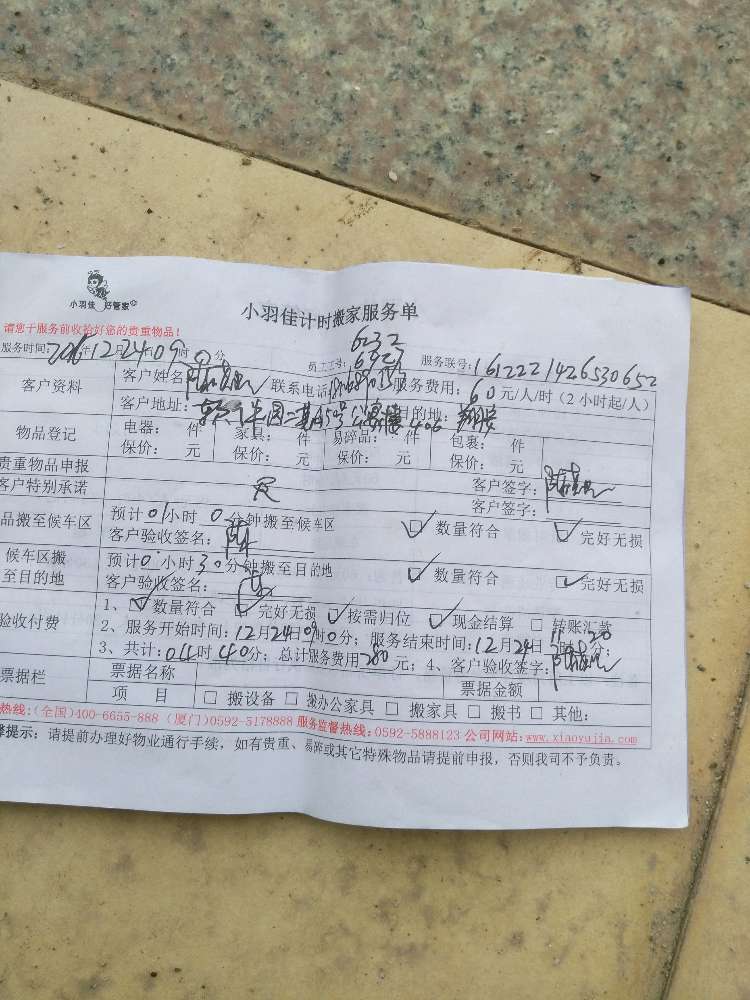 小羽佳 好管家
小羽佳计时搬家服务单
请您于服务前收拾好您的贵重物品！
服务时间：2016年12月24日09时0分 员工工号：6232 6327 服务联号：1612221426530652
客户资料 客户姓名： 联系电话： 服务费用：60元/人/时（2小时起/人）
客户地址： 目的地：翔安
物品登记 电器： 件 家具： 件 易碎品： 件 包裹： 件
保价： 元 保价： 元 保价： 元 保价： 元
贵重物品申报 客户签字：
客户特别承诺 客户签字：
品搬至候车区 预计01小时0分钟搬至候车区 数量符合 完好无损
客户验收签名：
候车区搬至目的地 预计0小时30分钟搬至目的地 数量符合 完好无损
客户验收签名：
验收付费 1、数量符合 完好无损 按需归位 现金结算 转账汇款
2、服务开始时间：12月24日09时0分；服务结束时间：12月24日11时20分；
3、共计：04时40分；总计服务费用280元；4、客户验收签字：
票据栏 票据名称 票据金额
项 目 搬设备 搬办公家具 搬家具 搬书 其他：
热线：(全国)400-6655-888 (厦门)0592-5178888 服务监督热线：0592-5888123 公司网站：www.xiaoyujia.com
馨提示：请提前办理好物业通行手续，如有贵重、易碎或其它特殊物品请提前申报，否则我司不予负责。